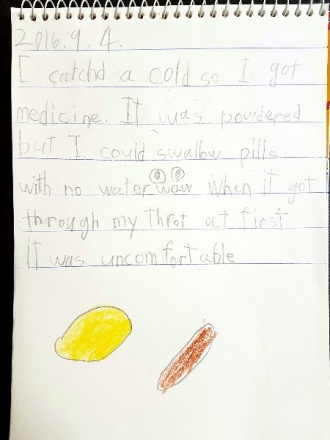 2016.9.4.
I catchd a cold so I got
medicine. It was powdered
but I could swallow pills
with no water wow when it got
through my throt at first
it was uncomfortable